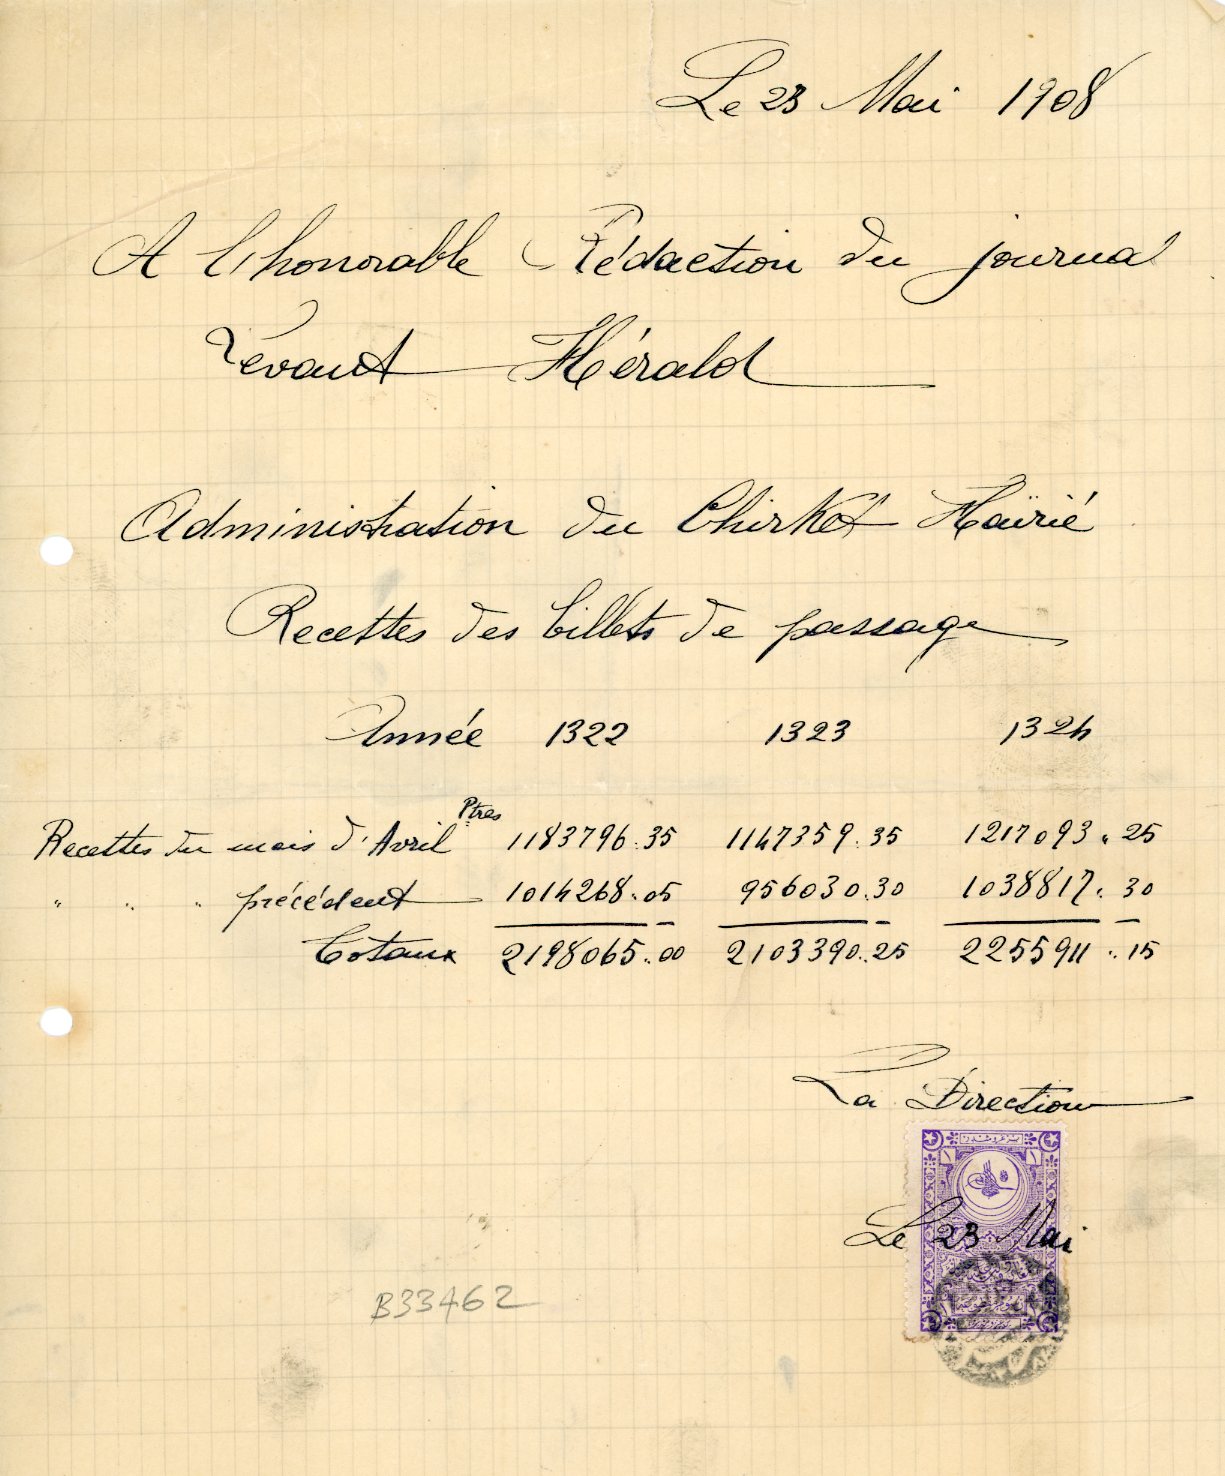 Le 23 Mai 1908
A l'honorable Rédaction du journal
Levant Hérald
Administration du Chirket Haïrié
Recettes des billets de passage
Année 1322 1323 1324
Recettes du mois d'Avril Ptres 1183796.35 1147359.35 1217093.25
" " " précédent 1014268.05 956030.30 1038817.30
Totaux 2198065.00 2103390.25 2255911.15
La Direction
Le 23 Mai
B33462